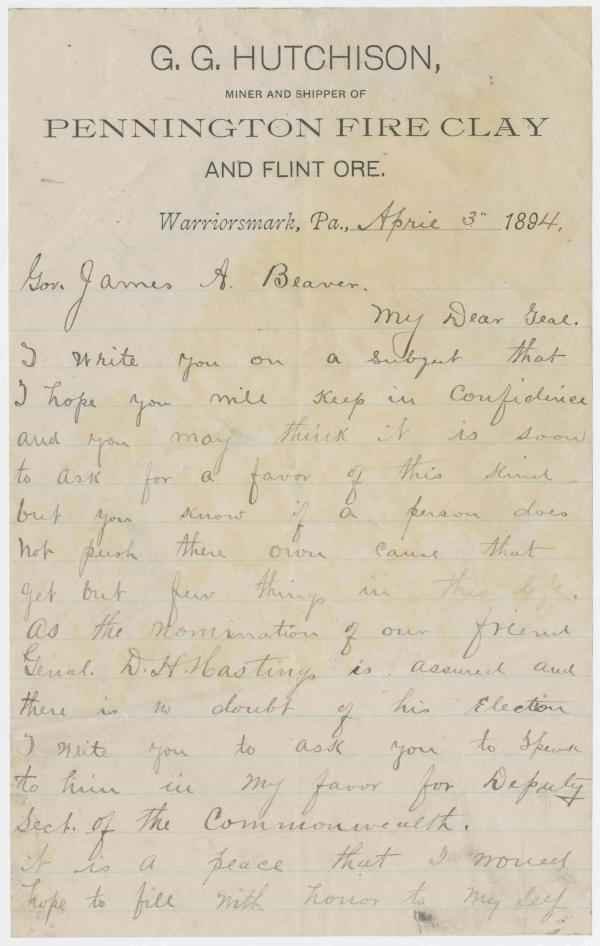 G. G. HUTCHISON,
MINER AND SHIPPER OF
PENNINGTON FIRE CLAY
AND FLINT ORE.
Warriorsmark, Pa., April 3" 1894.
Gov. James A. Beaver.
My Dear Genl.
I write you on a subject that
I hope you will keep in confidence
and you may think it is soon
to ask for a favor of this kind
but you know if a person does
not push there own cause that
get but few things in this life.
As the nomination of our friend
Genal. D. H. Hastings is assured and
there is no doubt of his Election
I write you to ask you to speak
to him in my favor for Deputy
Sect. of the Commonwealth.
it is a place that I would
hope to fill with honor to my self